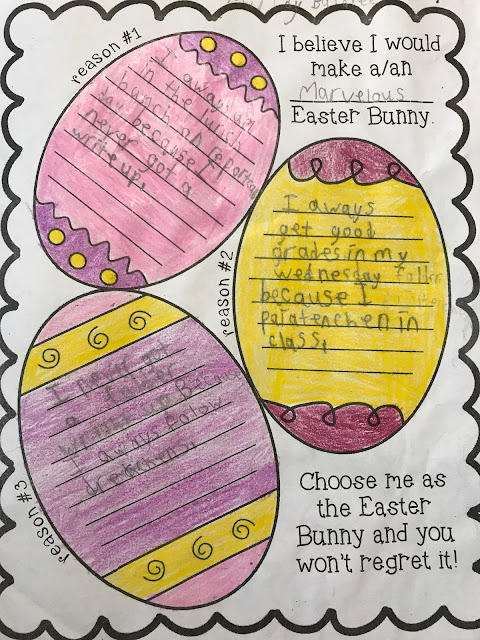 reason #1
I aways am
in the lunch
bunch on
day because I
never got a
write up.
I believe I would
make a/an
Marvelous
Easter Bunny.
reason #2
I aways
get good
grades in my
wednesday folder
because I
in
class,
reason #3
I never got
a
Because
I aways
Choose me as
the Easter
Bunny and you
won't regret it!